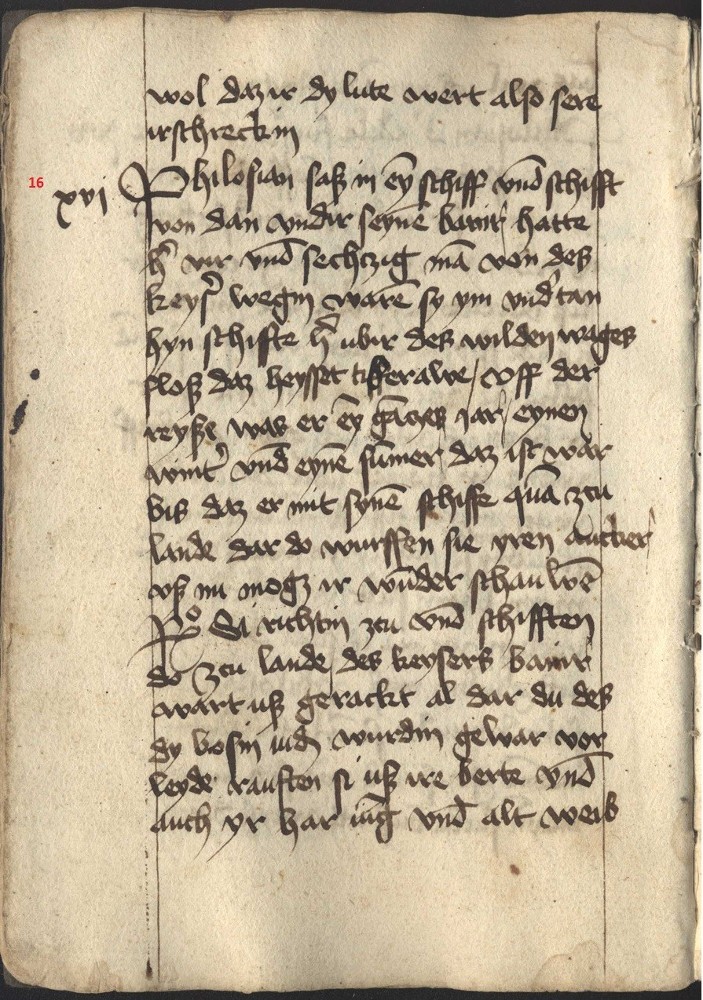 wol daz ir dy lute wert also sere
irschreckin
16
xvi
Philosian saß in ey̅ schiff vnd schifft
von dan vndir seyne̅ banir hatte
h' vir vnd sechczig ma̅ von des
keys' wegin ware̅ sy ym vnd'tan
hyn schifte h' ubir des wilden wages
floß daz heysset / vff der
reyße was er ey̅ ga̅czes jar / eynen
wint' vnd eyne̅ su̅mer daz ist war
bis daz er mit syne̅ schiffe qua̅ zcu
lande dar do wurffen sie yren ancker
vß nu mogz ir wu̅der schauwe̅
Si richtin zcu vnd schifften
do zcu lande / des keysers banir
wart uß gerackt al dar du des
dy bosin wurdin gewar vor
leyde rauften si uß ire berte vnd
auch yr har iu̅g vnd alt weib